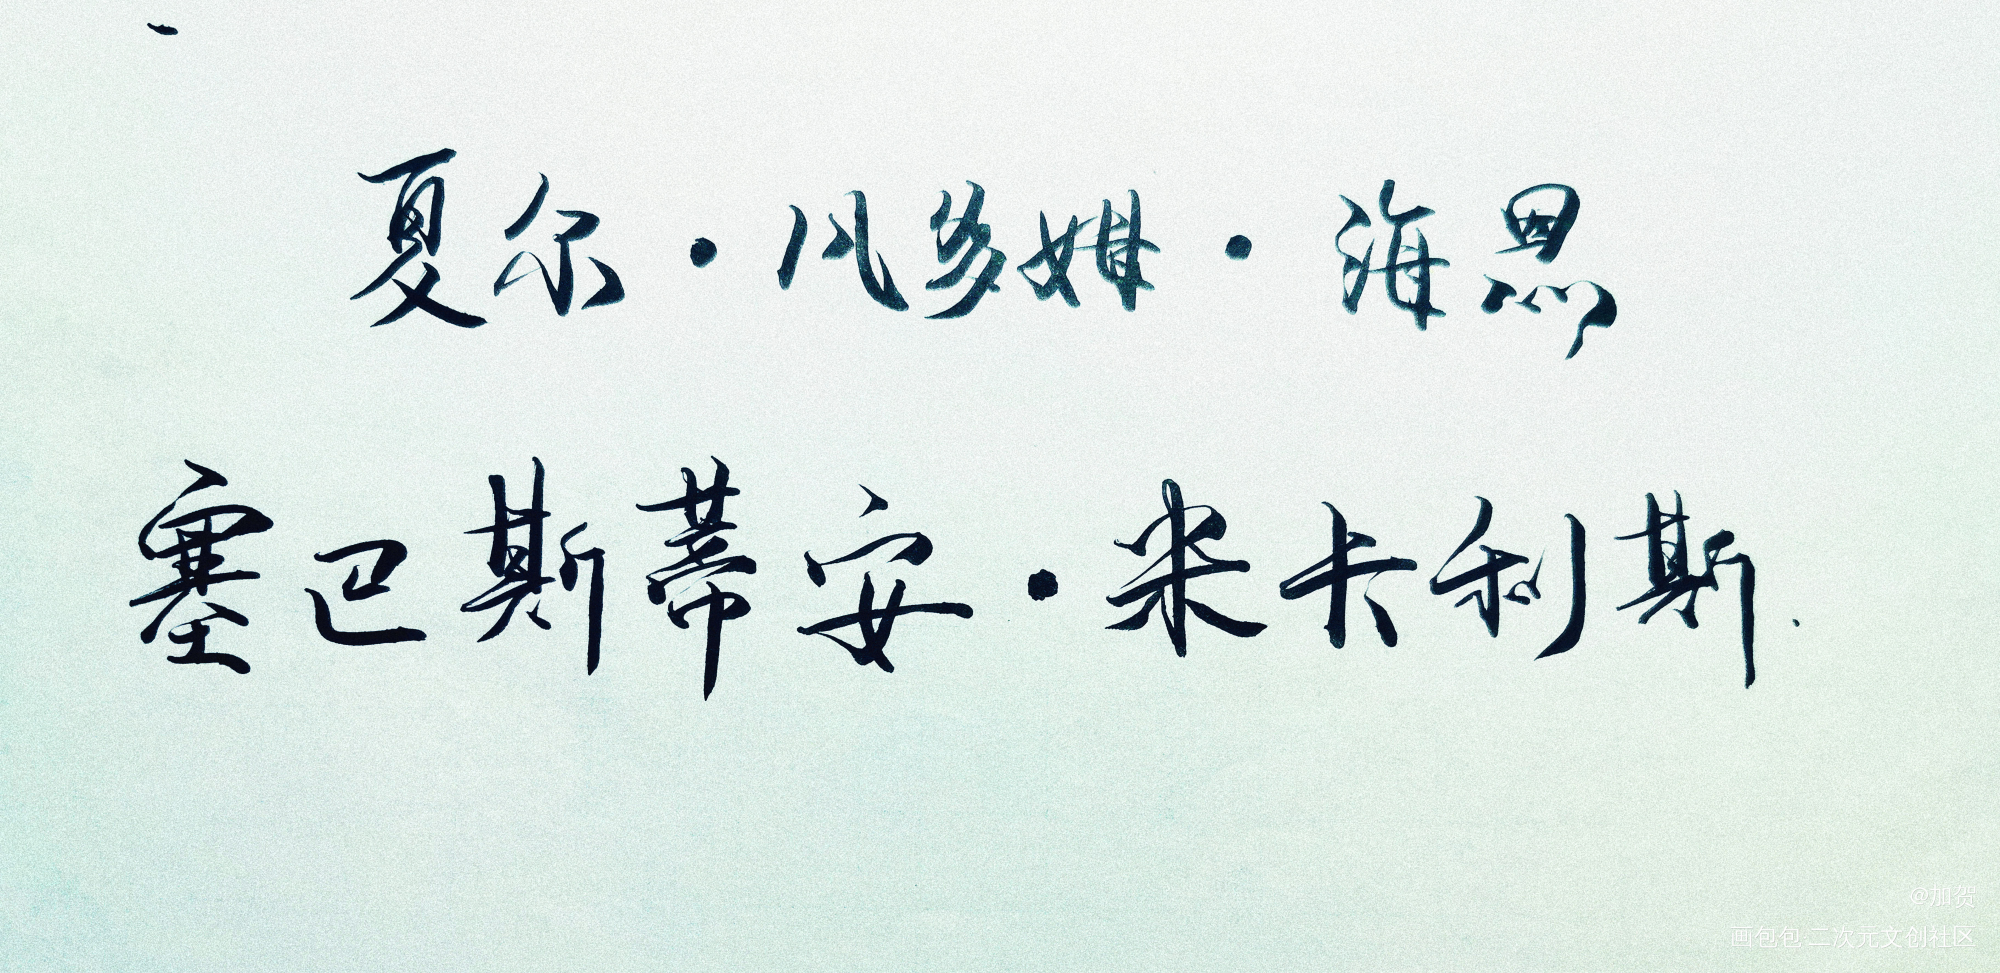 夏尔·凡多姆·海恩
塞巴斯蒂安·米卡利斯.
@加贺
画包包 二次元文创社区